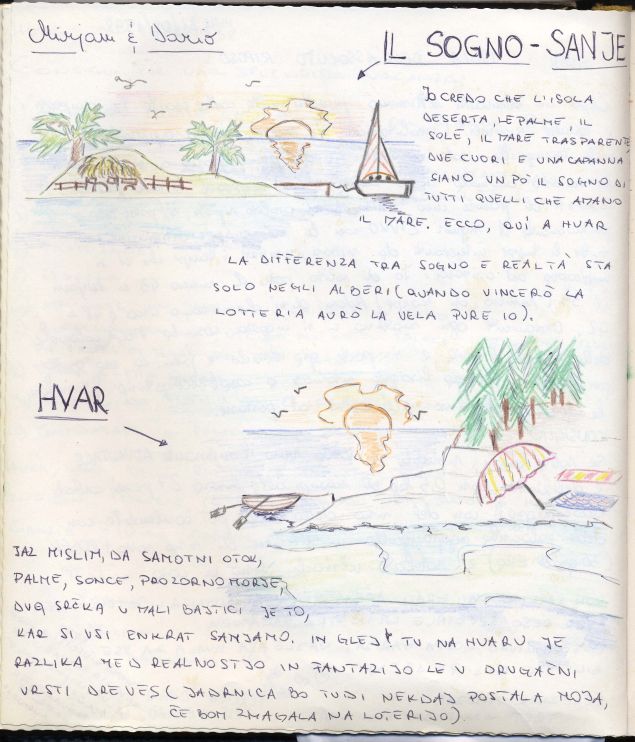 Mirjam & Dario
IL SOGNO - SANJE
IO CREDO CHE L'ISOLA
DESERTA, LE PALME, IL
SOLE, IL MARE TRASPARENTE,
DUE CUORI E UNA CAPANNA
SIANO UN PO' IL SOGNO DI
TUTTI QUELLI CHE AMANO
IL MARE. ECCO, QUI A HVAR
LA DIFFERENZA TRA SOGNO E REALTÀ STA
SOLO NEGLI ALBERI (QUANDO VINCERÒ LA
LOTTERIA AVRÒ LA VELA PURE IO).
HVAR
JAZ MISLIM, DA SAMOTNI OTOK,
PALME, SONCE, PROZORNO MORJE,
DVA SRČKA V MALI BAJTICI JE TO,
KAR SI VSI ENKRAT SANJAMO. IN GLEJ, TU NA HVARU JE
RAZLIKA MED REALNOSTJO IN FANTAZIJO LE V DRUGAČNI
VRSTI DREVES (JADRNICA BO TUDI NEKDAJ POSTALA MOJA,
ČE BOM ZMAGALA NA LOTERIJO).